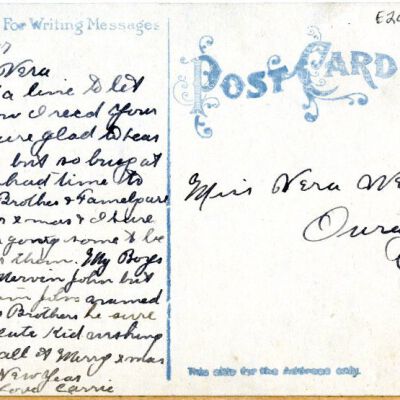 For Writing Messages
Vera
a line to let
I recd your
sure glad to hear
but so busy at
had time to
Brother & Famelpure
xmas & I sure
going some to be
them. My Boys
Mervin John but
named
Brothers he sure
cute Kid wishing
all A Merry xmas
New Year
Love Carrie
E20
POST CARD
Miss Vera We
Oura
This side for the Address Only.